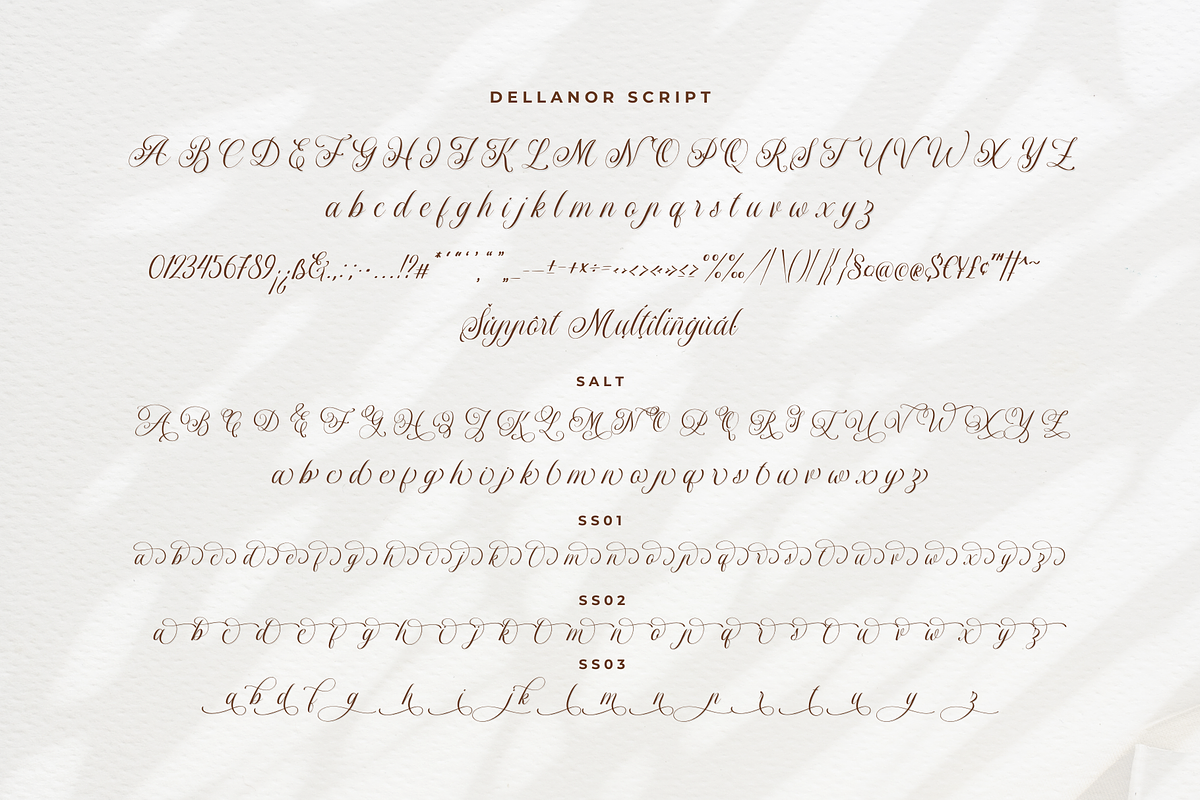 DELLANOR SCRIPT
A B C D E F G H I J K L M N O P Q R S T U V W X Y Z
a b c d e f g h i j k l m n o p q r s t u v w x y z
0123456789¡¿ß&.,:;·•…!?#*'"‘’“”‚„_-–—±−+×÷=‹›<>«»≤≥°%‰/|\()[]{}§¤@©®$€¥£¢™#^~
Šüppôrt Mulţílïñġùáł
SALT
A B C D E F G H I J K L M N O P Q R S T U V W X Y Z
a b c d e f g h i j k l m n o p q r s t u v w x y z
SS01
a b c d e f g h i j k l m n o p q r s t u v w x y z
SS02
a b c d e f g h i j k l m n o p q r s t u v w x y z
SS03
a b d f g h i j k l m n p r t u y z